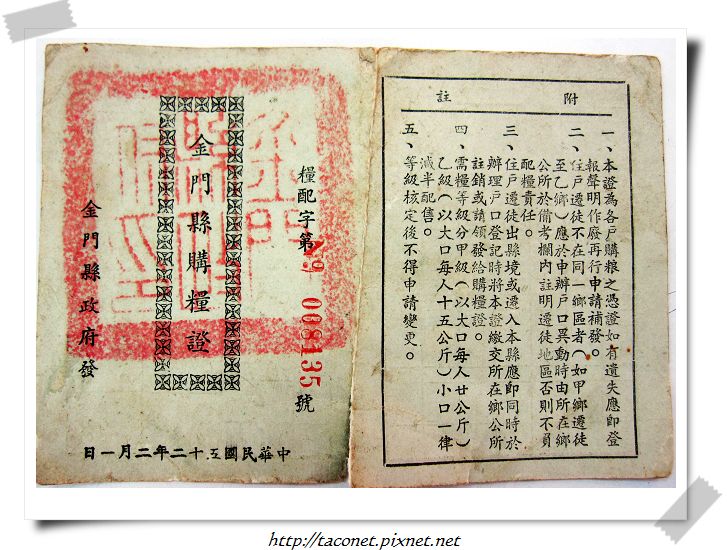 糧配字第 008135 號
金門縣購糧證
金門縣政府發
中華民國五十二年二月一日
附註
一、本證為各戶購粮之憑證如有遺失應即登
報聲明作廢再行申請補發。
二、住戶遷徙不在同一鄉區者(如甲鄉遷徙
至乙鄉)應於申辦戶口異動時由所在鄉
公所於備考欄內註明遷徙地區否則不負
配糧責任。
三、住戶遷徙出縣境或遷入本縣應即同時於
辦理戶口登記時將本證繳交所在鄉公所
註銷或請領發給購糧證。
四、需糧等級分甲級(以大口每人廿公斤)
乙級(以大口每人十五公斤)小口一律
減半配售。
五、等級核定後不得申請變更。
http://taconet.pixnet.net